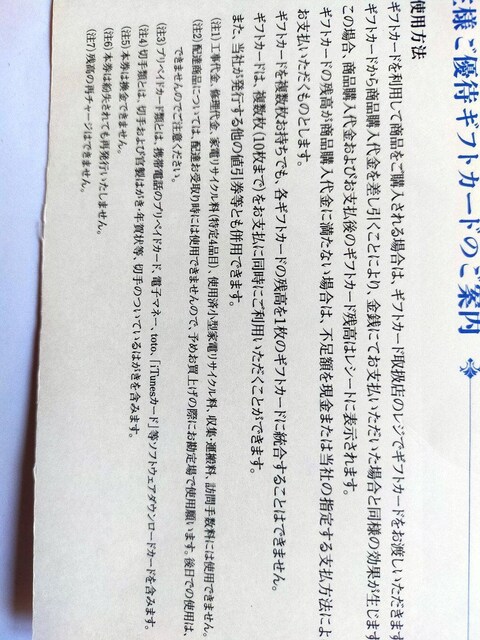 主様ご優待ギフトカードのご案内
使用方法
ギフトカードを利用して商品をご購入される場合は、ギフトカード取扱店のレジでギフトカードをお渡しいただきます
ギフトカードから商品購入代金を差し引くことにより、金銭にてお支払いただいた場合と同様の効果が生じます
この場合、商品購入代金およびお支払後のギフトカード残高はレシートに表示されます。
ギフトカードの残高が商品購入代金に満たない場合は、不足額を現金または当社の指定する支払方法によ
お支払いただくものとします。
ギフトカードを複数枚お持ちでも、各ギフトカードの残高を1枚のギフトカードに統合することはできません。
ギフトカードは、複数枚(10枚まで)をお支払に同時にご利用いただくことができます。
また、当社が発行する他の値引券等とも併用できます。
(注1)工事代金、修理代金、家電リサイクル料(特定4品目)、使用済小型家電リサイクル料、収集・運搬料、訪問手数料には使用できません。
(注2)配達商品については、配達お受取り時には使用できませんので、予めお買上げの際にお勘定場で使用願います。後日での使用は、
できませんのでご注意ください。
(注3)プリペイドカード類とは、携帯電話のプリペイドカード、電子マネー、toto、「iTunesカード」等ソフトウェアダウンロードカードを含みます。
(注4)切手類とは、切手および官製はがき・年賀状等、切手のついているはがきを含みます。
(注5)本券は換金できません。
(注6)本券は紛失されても再発行いたしません。
(注7)残高の再チャージはできません。